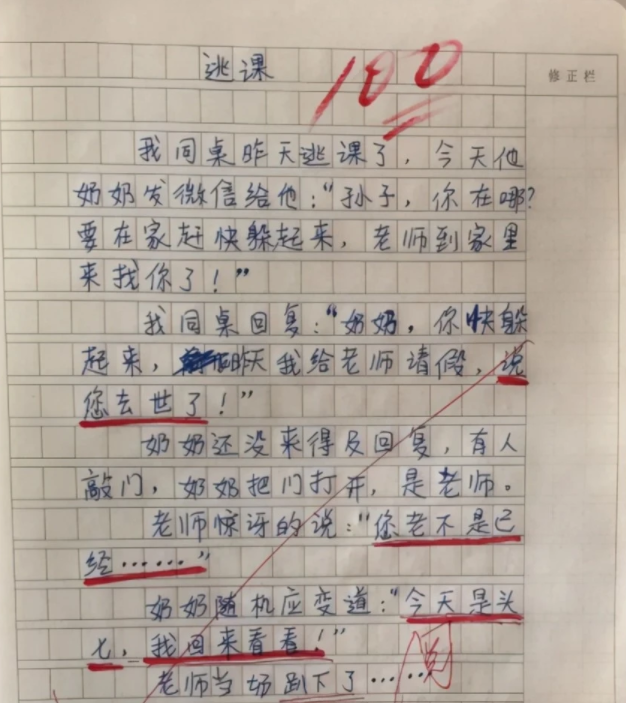 逃课
100
修正栏
我同桌昨天逃课了，今天他
奶奶发微信给他：“孙子，你在哪？
要在家赶快躲起来，老师到家里
来找你了！”
我同桌回复：“奶奶，你快躲
起来，昨天我给老师请假，说
您去世了！”
奶奶还没来得及回复，有人
敲门，奶奶把门打开，是老师。
老师惊讶的说：“您老不是已
经……”
奶奶随机应变道：“今天是头
七，我回来看看！”
老师当场趴下了……
阅